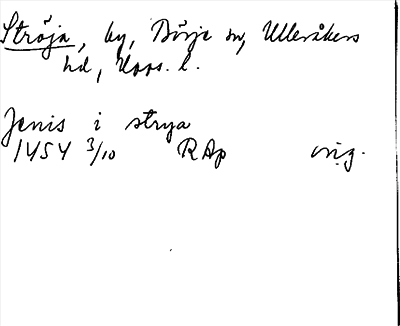 Ströja, by, Börje sn, Ulleråkers
hd, Upps. l.
Jenis i strya
1454 3/10 RAp orig.